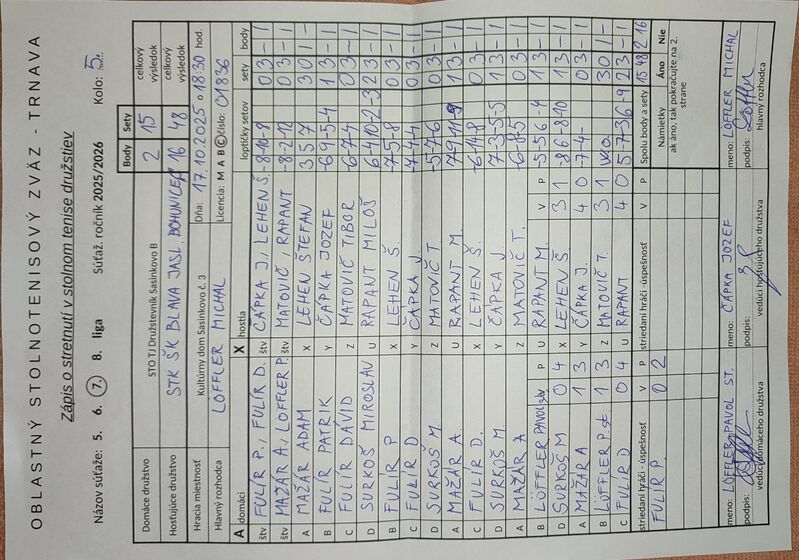 OBLASTNÝ STOLNOTENISOVÝ ZVÄZ - TRNAVA
Zápis o stretnutí v stolnom tenise družstiev
Názov súťaže: 5. 6. 7. 8. liga Súťaž. ročník 2025/2026 Kolo: 5.
Body Sety
Domáce družstvo STO TJ Družstevník Sasinkovo B 2 15 celkový výsledok
Hosťujúce družstvo STK ŠK BLAVA JASL. BOHUNICE 16 48 celkový výsledok
Hracia miestnosť Kultúrny dom Sasinkovo č. 3 Dňa: 17.10.2025 o 18:30 hod.
Hlavný rozhodca LÖFFLER MICHAL Licencia: M A B C číslo: 01836
A domáci X hostia loptičky setov sety body
štv FULÍR P., FULÍR D. štv ČÁPKA J, LEHEN Š. -8-10-8 0 3 - 1
štv MAŽÁR A, LÖFFLER P. štv MATOVIČ, RAPANT -8-2-12 0 3 - 1
A MAŽÁR ADAM X LEHEN ŠTEFAN 3 5 7 3 0 1 -
B FULÍR PATRIK Y ČÁPKA JOZEF -6 9 -5 -4 1 3 - 1
C FULÍR DÁVID Z MATOVIČ TIBOR -6-7-4 0 3 - 1
D SURKOŠ MIROSLAV U RAPANT MILOŠ 2 3 - 1
B FULÍR P X LEHEN Š. -7-5-8 0 3 - 1
C FULÍR D Y ČAPKA J. 0 3 - 1
D SURKOŠ M. Z MATOVIČ T. -5-7-6 0 3 - 1
A MAŽÁR A. U RAPANT M. 1 3 - 1
C FULÍR D. X LEHEN Š. 0 3 - 1
D SURKOŠ M. Y ČÁPKA J. 1 3 - 1
A MAŽÁR A Z MATOVIČ T. -6-8-5 0 3 - 1
B LÖFFLER PAVOL st. V P U RAPANT M. V P -5-5 6 -4 1 3 - 1
D SURKOŠ M 0 4 X LEHEN Š 3 1 -8-6 8-10 1 3 - 1
A MAŽÁR A 1 3 Y ČÁPKA J. 4 0 0 3 - 1
B LÖFFLER P. st 1 3 Z MATOVIČ T. 3 1 w.o. 3 0 1 -
C FULÍR D 0 4 U RAPANT 4 0 2 3 - 1
striedaní hráči -úspešnosť V P striedaní hráči -úspešnosť V P Spolu body a sety 15 48 2 16
FULÍR P. 0 2
Námietky Áno Nie
ak áno, tak pokračujte na 2. strane
meno: LÖFFLER PAVOL ST. meno: ČÁPKA JOZEF meno: LÖFFLER MICHAL
podpis: podpis: podpis: Löffler
vedúci domáceho družstva vedúci hosťujúceho družstva hlavný rozhodca